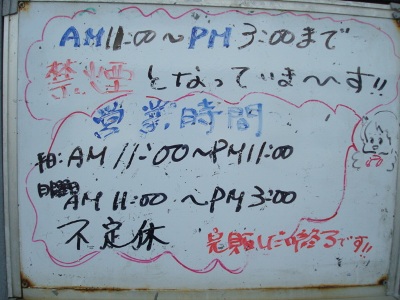 AM11:00~PM3:00まで
禁煙となっていま〜〜す!!
営業時間
平日:AM 11:00~PM11:00
AM 11:00 ~PM 3:00
不定休